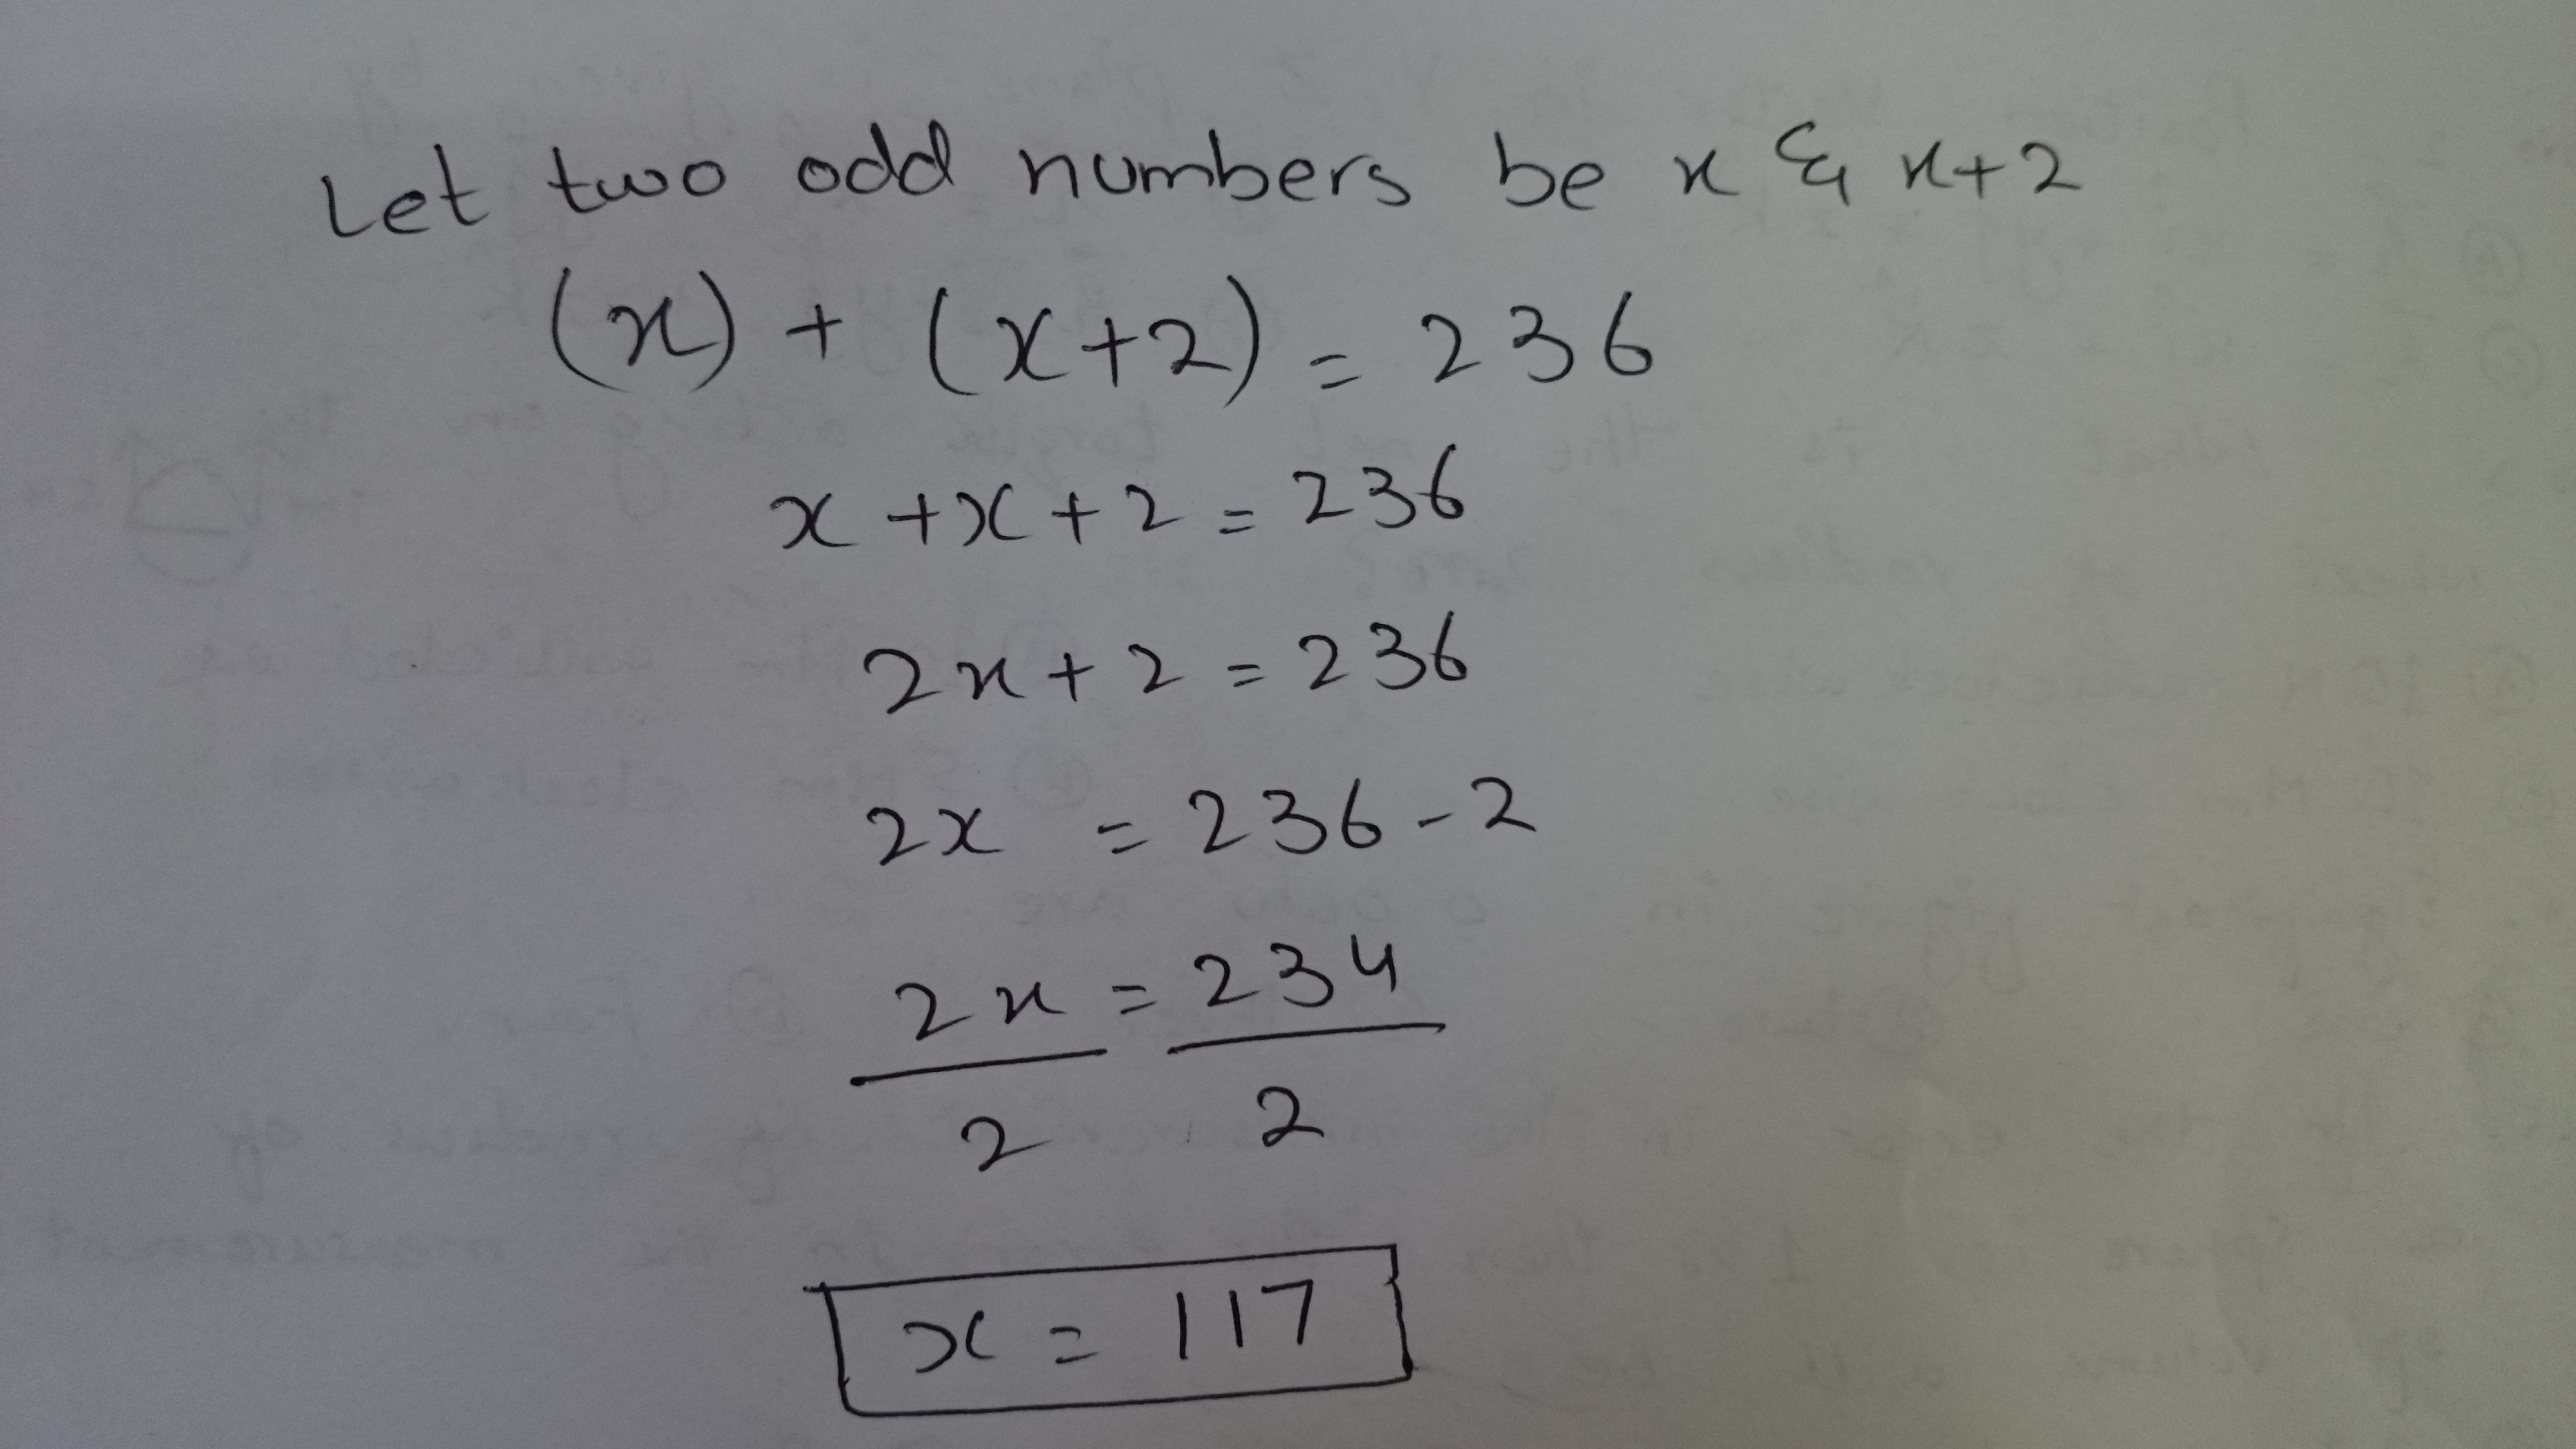 Let two odd numbers be x & x+2
(x) + (x+2) = 236
x + x + 2 = 236
2x + 2 = 236
2x = 236 - 2
2x = 234
2 2
x = 117